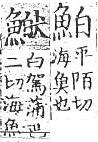 鮊
平陌切
海魚也
白駕蒲巴
二切海魚